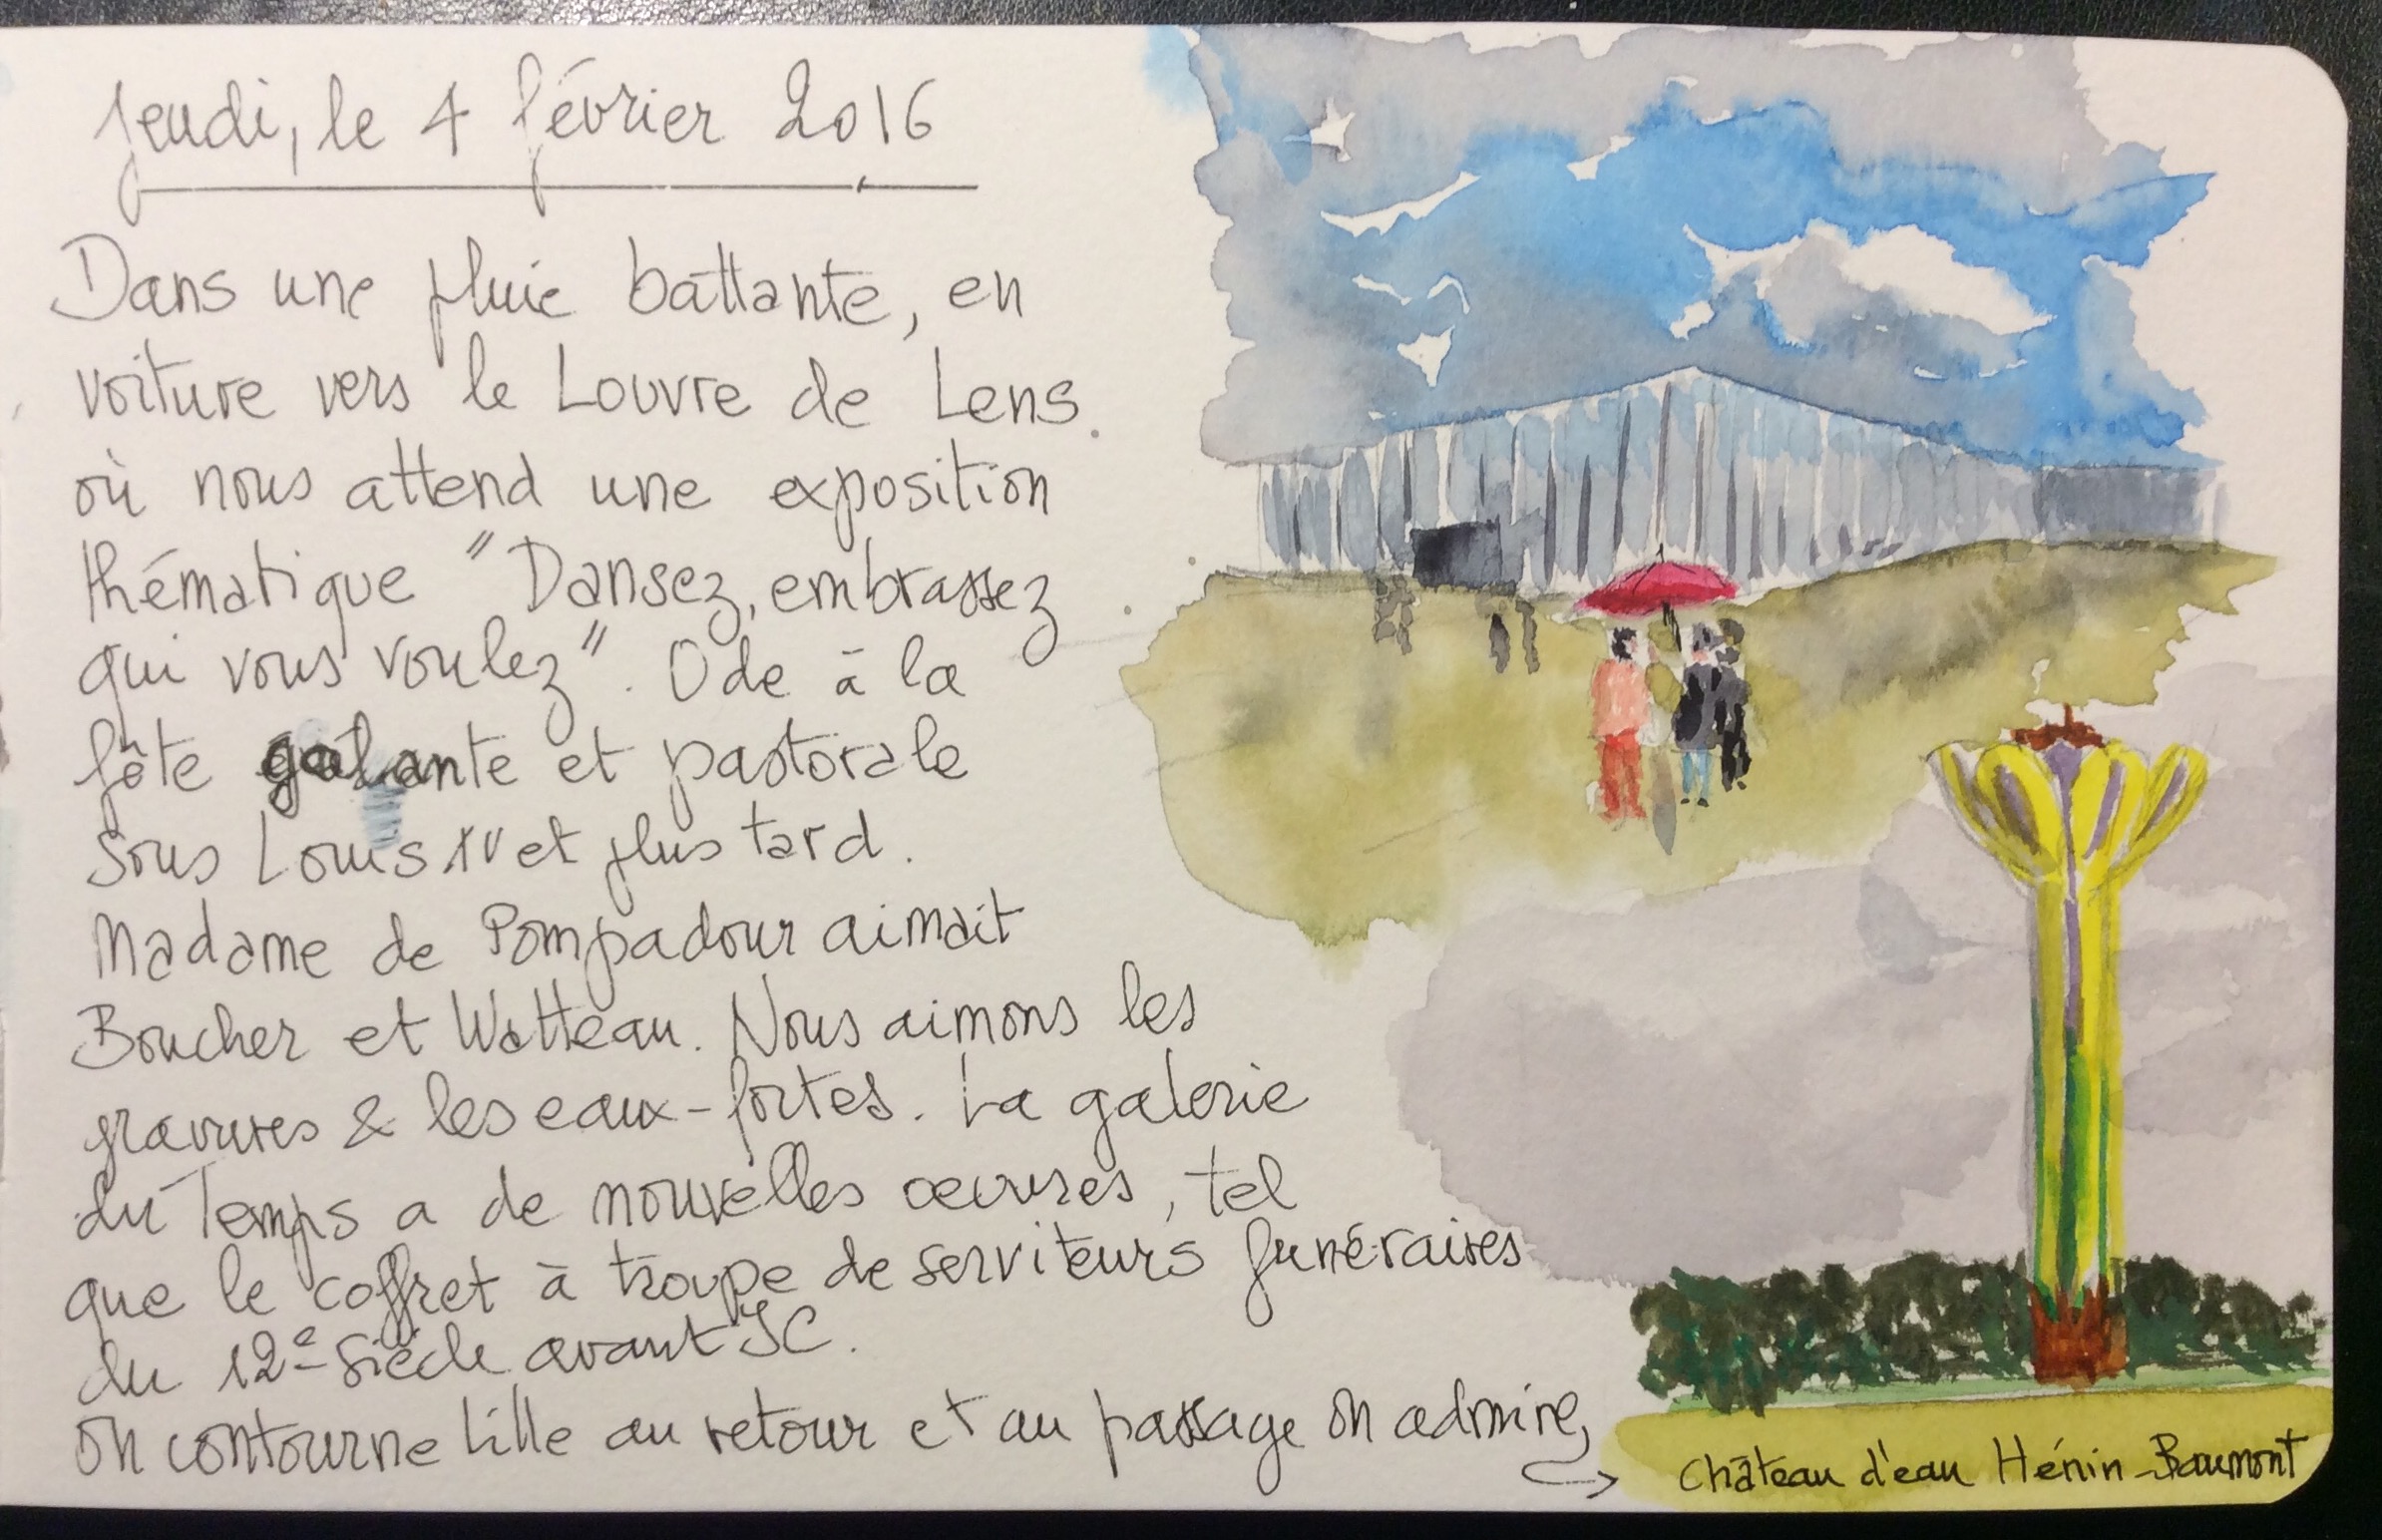 Jeudi, le 4 février 2016
Dans une pluie battante, en
voiture vers le Louvre de Lens.
où nous attend une exposition
thématique "Dansez, embrassez
qui vous voulez". Ode à la
fête galante et pastorale
sous Louis XV et plus tard.
Madame de Pompadour aimait
Boucher et Watteau. Nous aimons les
gravures & les eaux-fortes. La galerie
du Temps a de nouvelles œuvres, tel
que le coffret à troupe de serviteurs funéraires
du 12e siècle avant JC.
On contourne Lille au retour et au passage on admire,
Château d'eau Hénin-Beaumont